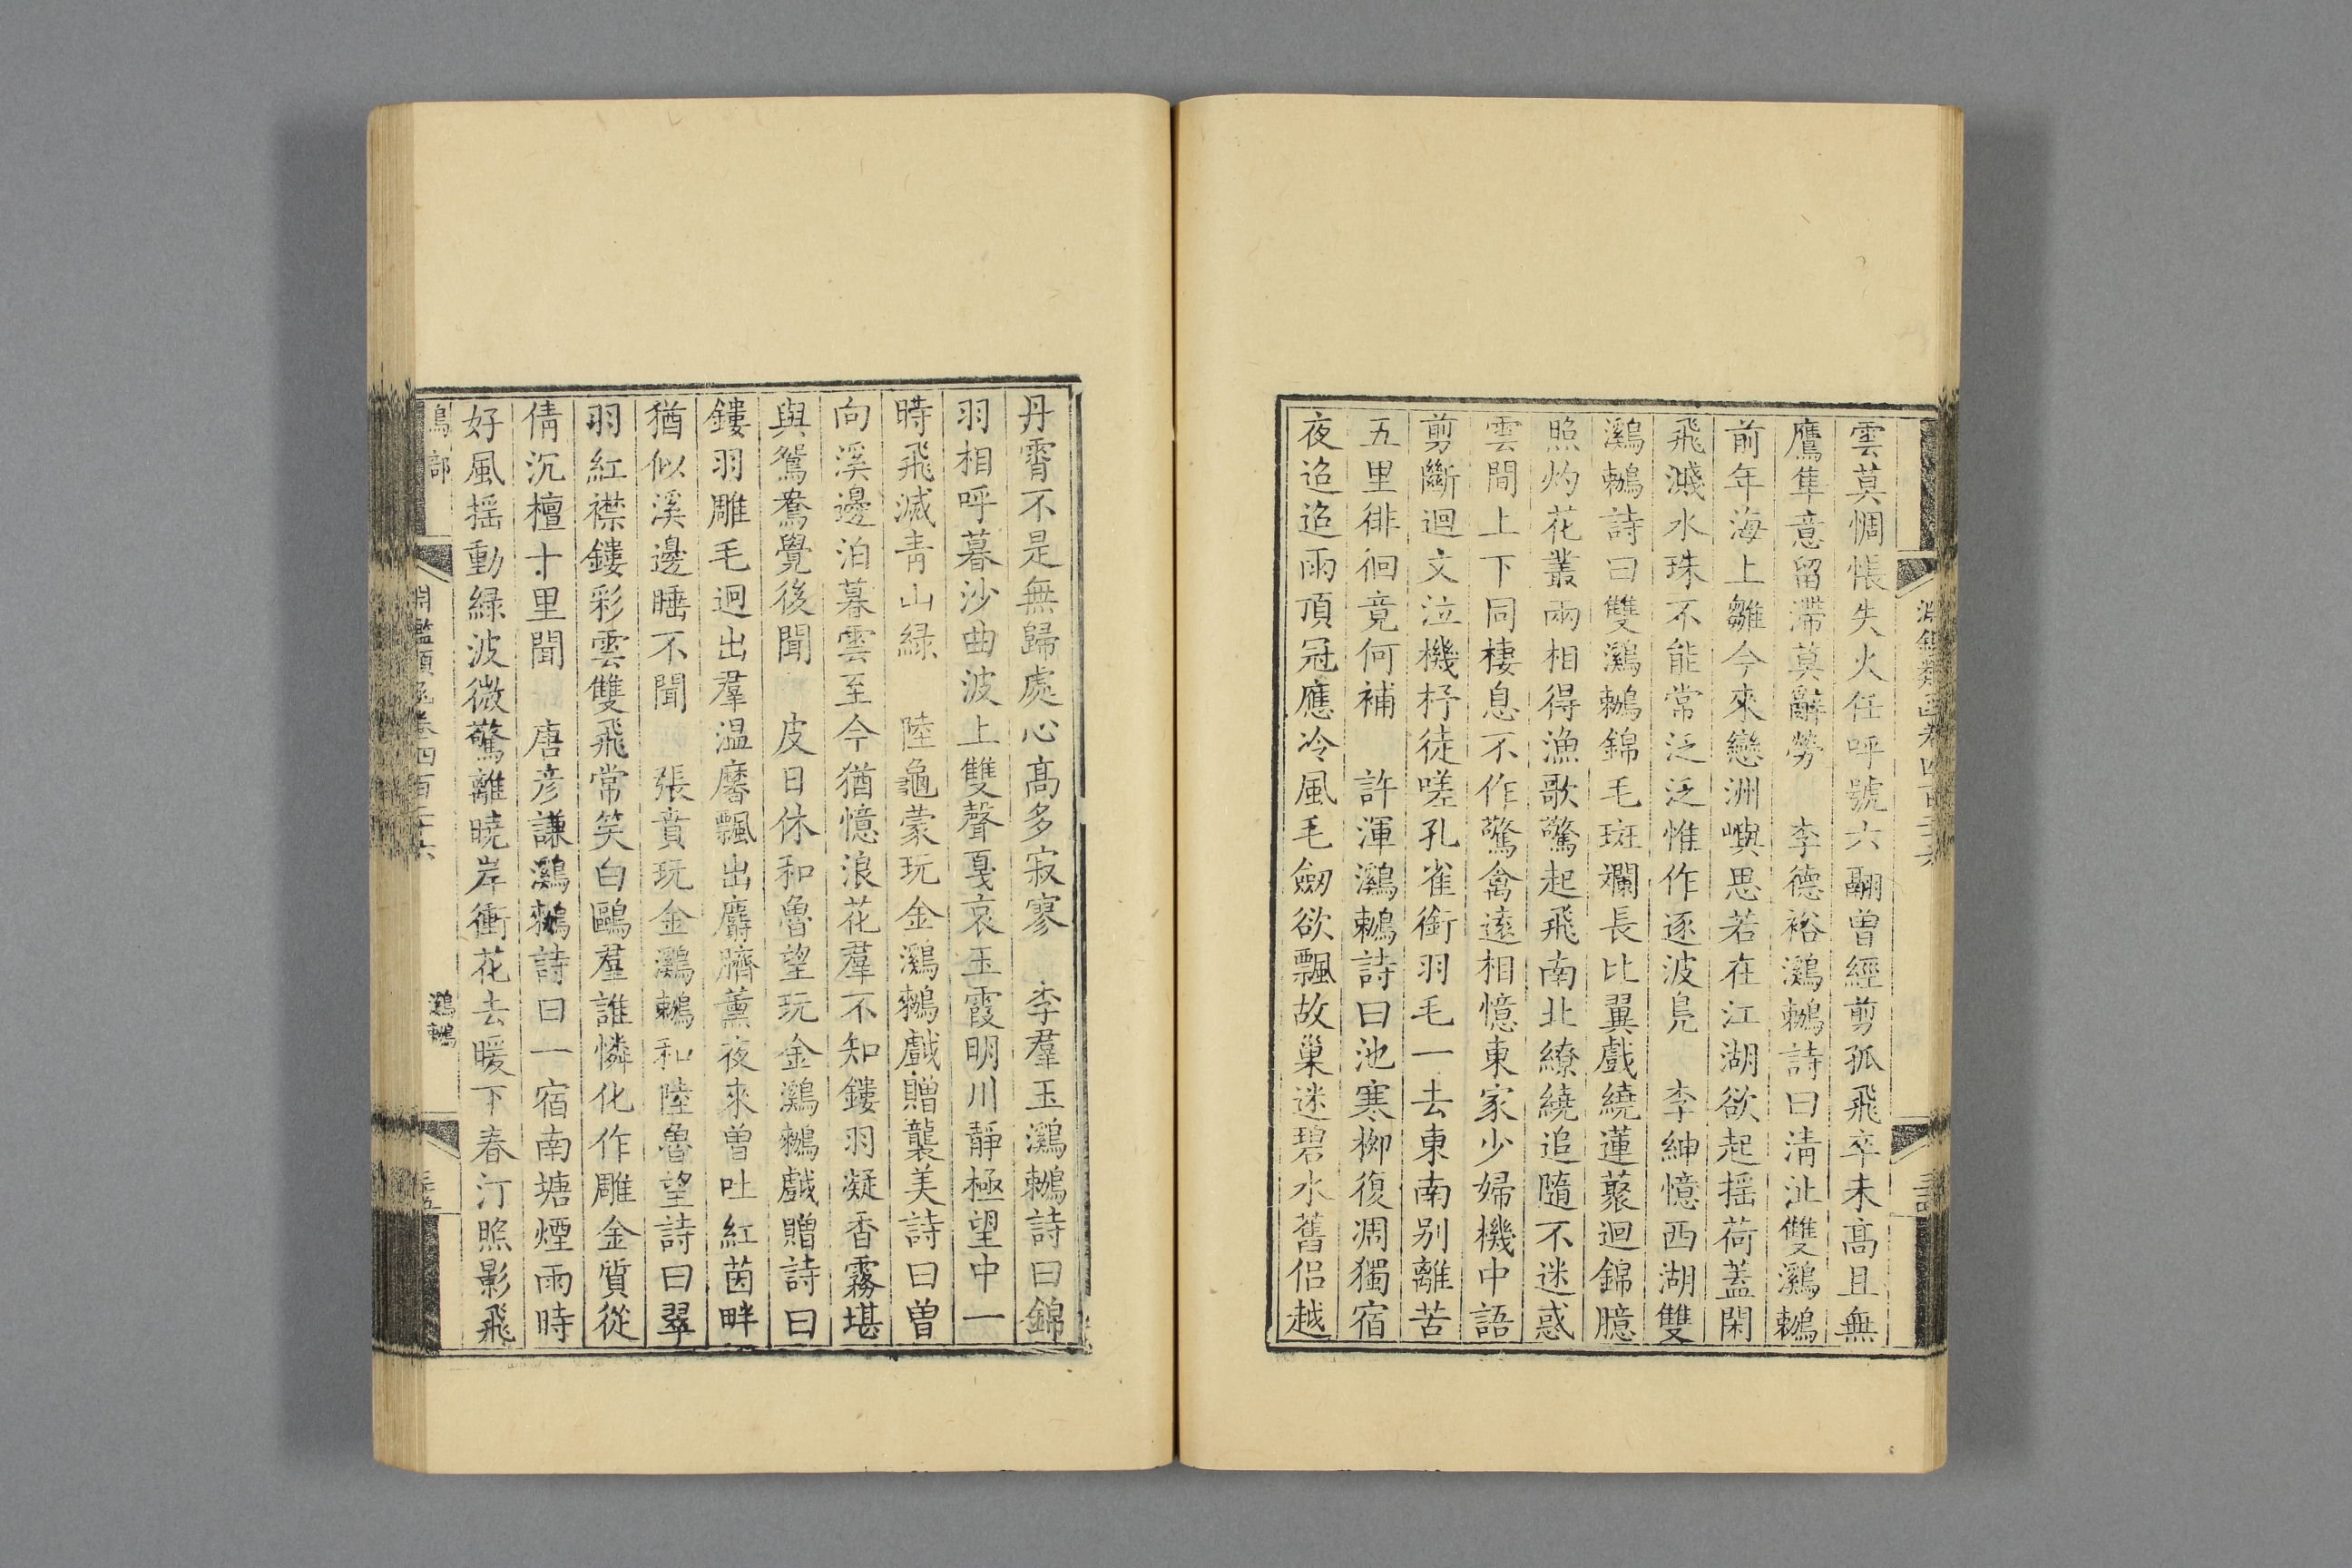 雲莫惆悵失火任呼號六翮曾經剪孤飛卒未高且無
鷹隼意留滯莫辭勞　李德裕鸂鶒詩曰清沚雙鸂鶒
前年海上雛今來戀洲嶼思若在江湖欲起搖荷蓋閑
飛濺水珠不能常泛泛惟作逐波鳧　李紳憶西湖雙
鸂鶒詩曰雙鸂鶒錦毛斑斕長比翼戲繞蓮藂迴錦臆
照灼花叢兩相得漁歌驚起飛南北繚繞追隨不迷惑
雲間上下同棲息不作驚禽遠相憶東家少婦機中語
剪斷迴文泣機杼徒嗟孔雀銜羽毛一去東南別離苦
五里徘徊竟何補　許渾鸂鶒詩曰池寒栁復凋獨宿
夜迢迢雨頂冠應冷風毛劒欲飄故巢迷碧水舊侣越
丹霄不是無歸處心高多寂寥　李羣玉鸂鶒詩曰錦
羽相呼暮沙曲波上雙聲戛哀玉霞明川靜極望中一
時飛滅青山緑　陸龜蒙玩金鸂鶒戲贈襲美詩曰曾
向溪邊泊暮雲至今猶憶浪花羣不知鏤羽凝香霧堪
與鴛鴦覺後聞　皮日休和魯望玩金鸂鶒戲贈詩曰
鏤羽雕毛迥出羣温黁飄出麝臍薰夜來曾吐紅茵畔
猶似溪邊睡不聞　張賁玩金鸂鶒和陸魯望詩曰翠
羽紅襟鏤彩雲雙飛常笑白鷗羣誰憐化作雕金質從
倩沉檀十里聞　唐彦謙鸂鶒詩曰一宿南塘煙雨時
好風搖動緑波微驚離曉岸衝花去暖下春汀照影飛
鳥部
淵鑑類函卷四百二十六
鸂鶒